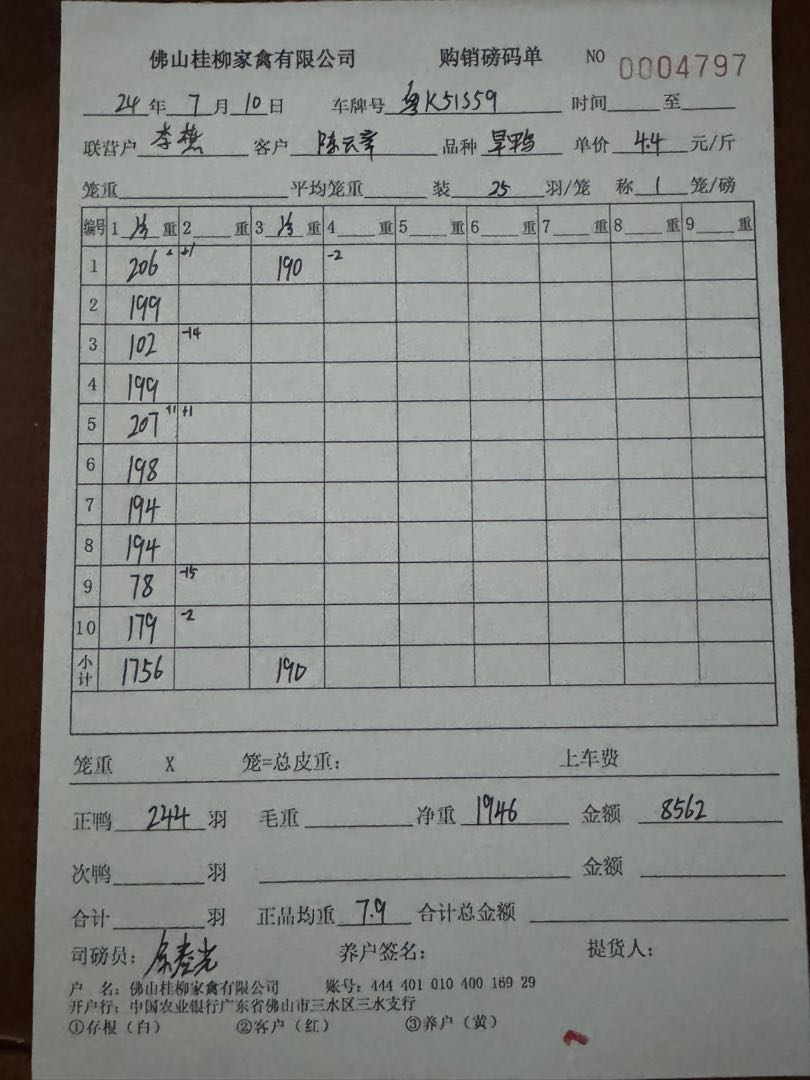 佛山桂柳家禽有限公司 购销磅码单 NO 0004797
24年7月10日 车牌号 粤K51S59 时间 至
联营户 李燕 客户 陈云章 品种 旱鸭 单价 4.4 元/斤
笼重 平均笼重 装 25 羽/笼 称 1 笼/磅
编号 1 净 重 2 重 3 净 重 4 重 5 重 6 重 7 重 8 重 9 重
1 206 +1 190 -2
2 199
3 102 -14
4 199
5 207 +1 +1
6 198
7 194
8 194
9 78 -15
10 179 -2
小计 1756 190
笼重 X 笼=总皮重: 上车费
正鸭 244 羽 毛重 净重 1946 金额 8562
次鸭 羽 金额
合计 羽 正品均重 7.9 合计总金额
司磅员: 养户签名: 提货人:
户 名: 佛山桂柳家禽有限公司 账号: 444 401 010 400 169 29
开户行: 中国农业银行广东省佛山市三水区三水支行
①存根(白) ②客户(红) ③养户(黄)